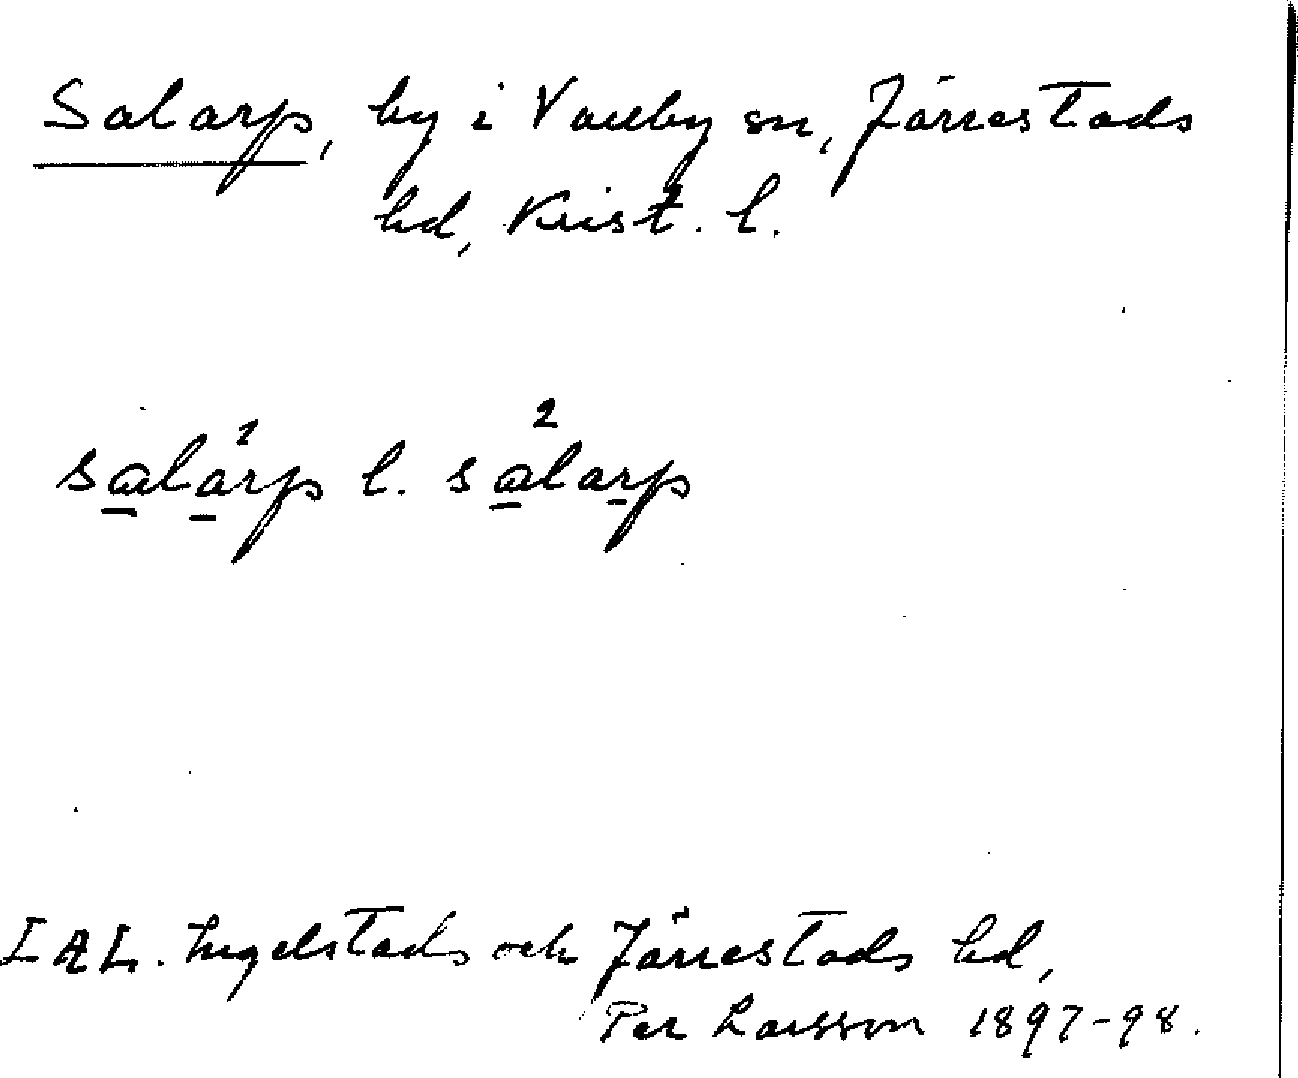 Salarp, by i Vallby sn, Järrestads
hd, Krist. l.
salarp l. salarp
Ingelstads och Järrestads hd,
Per Larsson 1897-98.